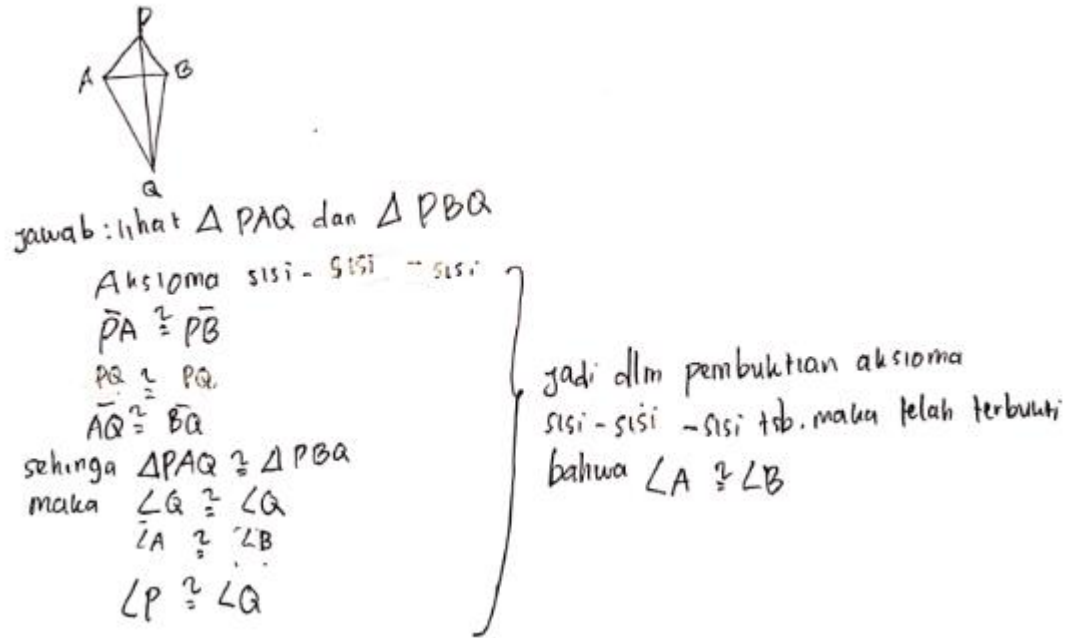 P
A B
Q
jawab : lihat Δ PAQ dan Δ PBQ
Aksioma sisi - sisi - sisi
P̄A ≅ P̄B
PQ ≅ PQ
ĀQ ≅ B̄Q
sehinga ΔPAQ ≅ ΔPBQ
maka ∠Q ≅ ∠Q
∠A ≅ ∠B
∠P ≅ ∠Q
jadi dlm pembuktian aksioma
sisi - sisi - sisi tsb. maka telah terbukti
bahwa ∠A ≅ ∠B